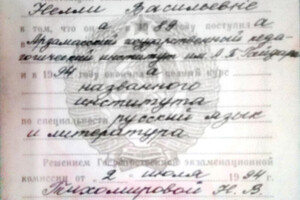 Нелли Васильевне
в том, что он а в 19 89 году поступил а
в Арзамасский государственный педа-
гогический институт им. А. П. Гайдара
и в 19 94 году окончил а полный курс
названного
института
по специальности русский язык
и литература
Решением Государственной экзаменационной
комиссии от 2 июля 19 94 г.
Тихомировой Н. В.